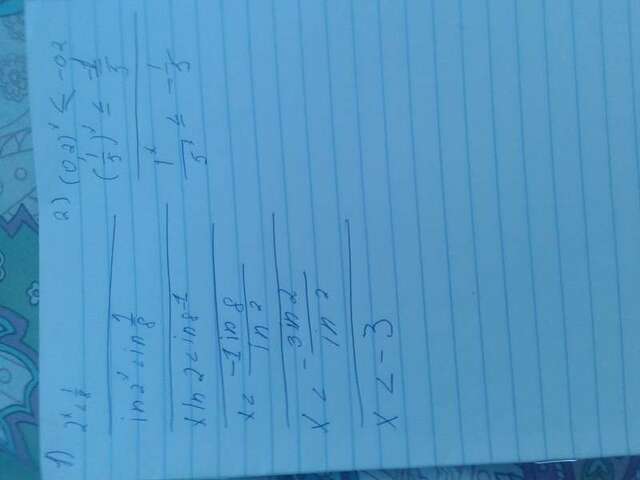 1)
2^x < 1/8
in 2^x < in 1/8
x ln 2 < in 8^-1
x < -1 in 8 / in 2
x < - 3 in 2 / in 2
x < -3
2) (0,2)^x ≤ -02
(1/5)^x ≤ -1/5
1^x / 5^x ≤ - 1/5